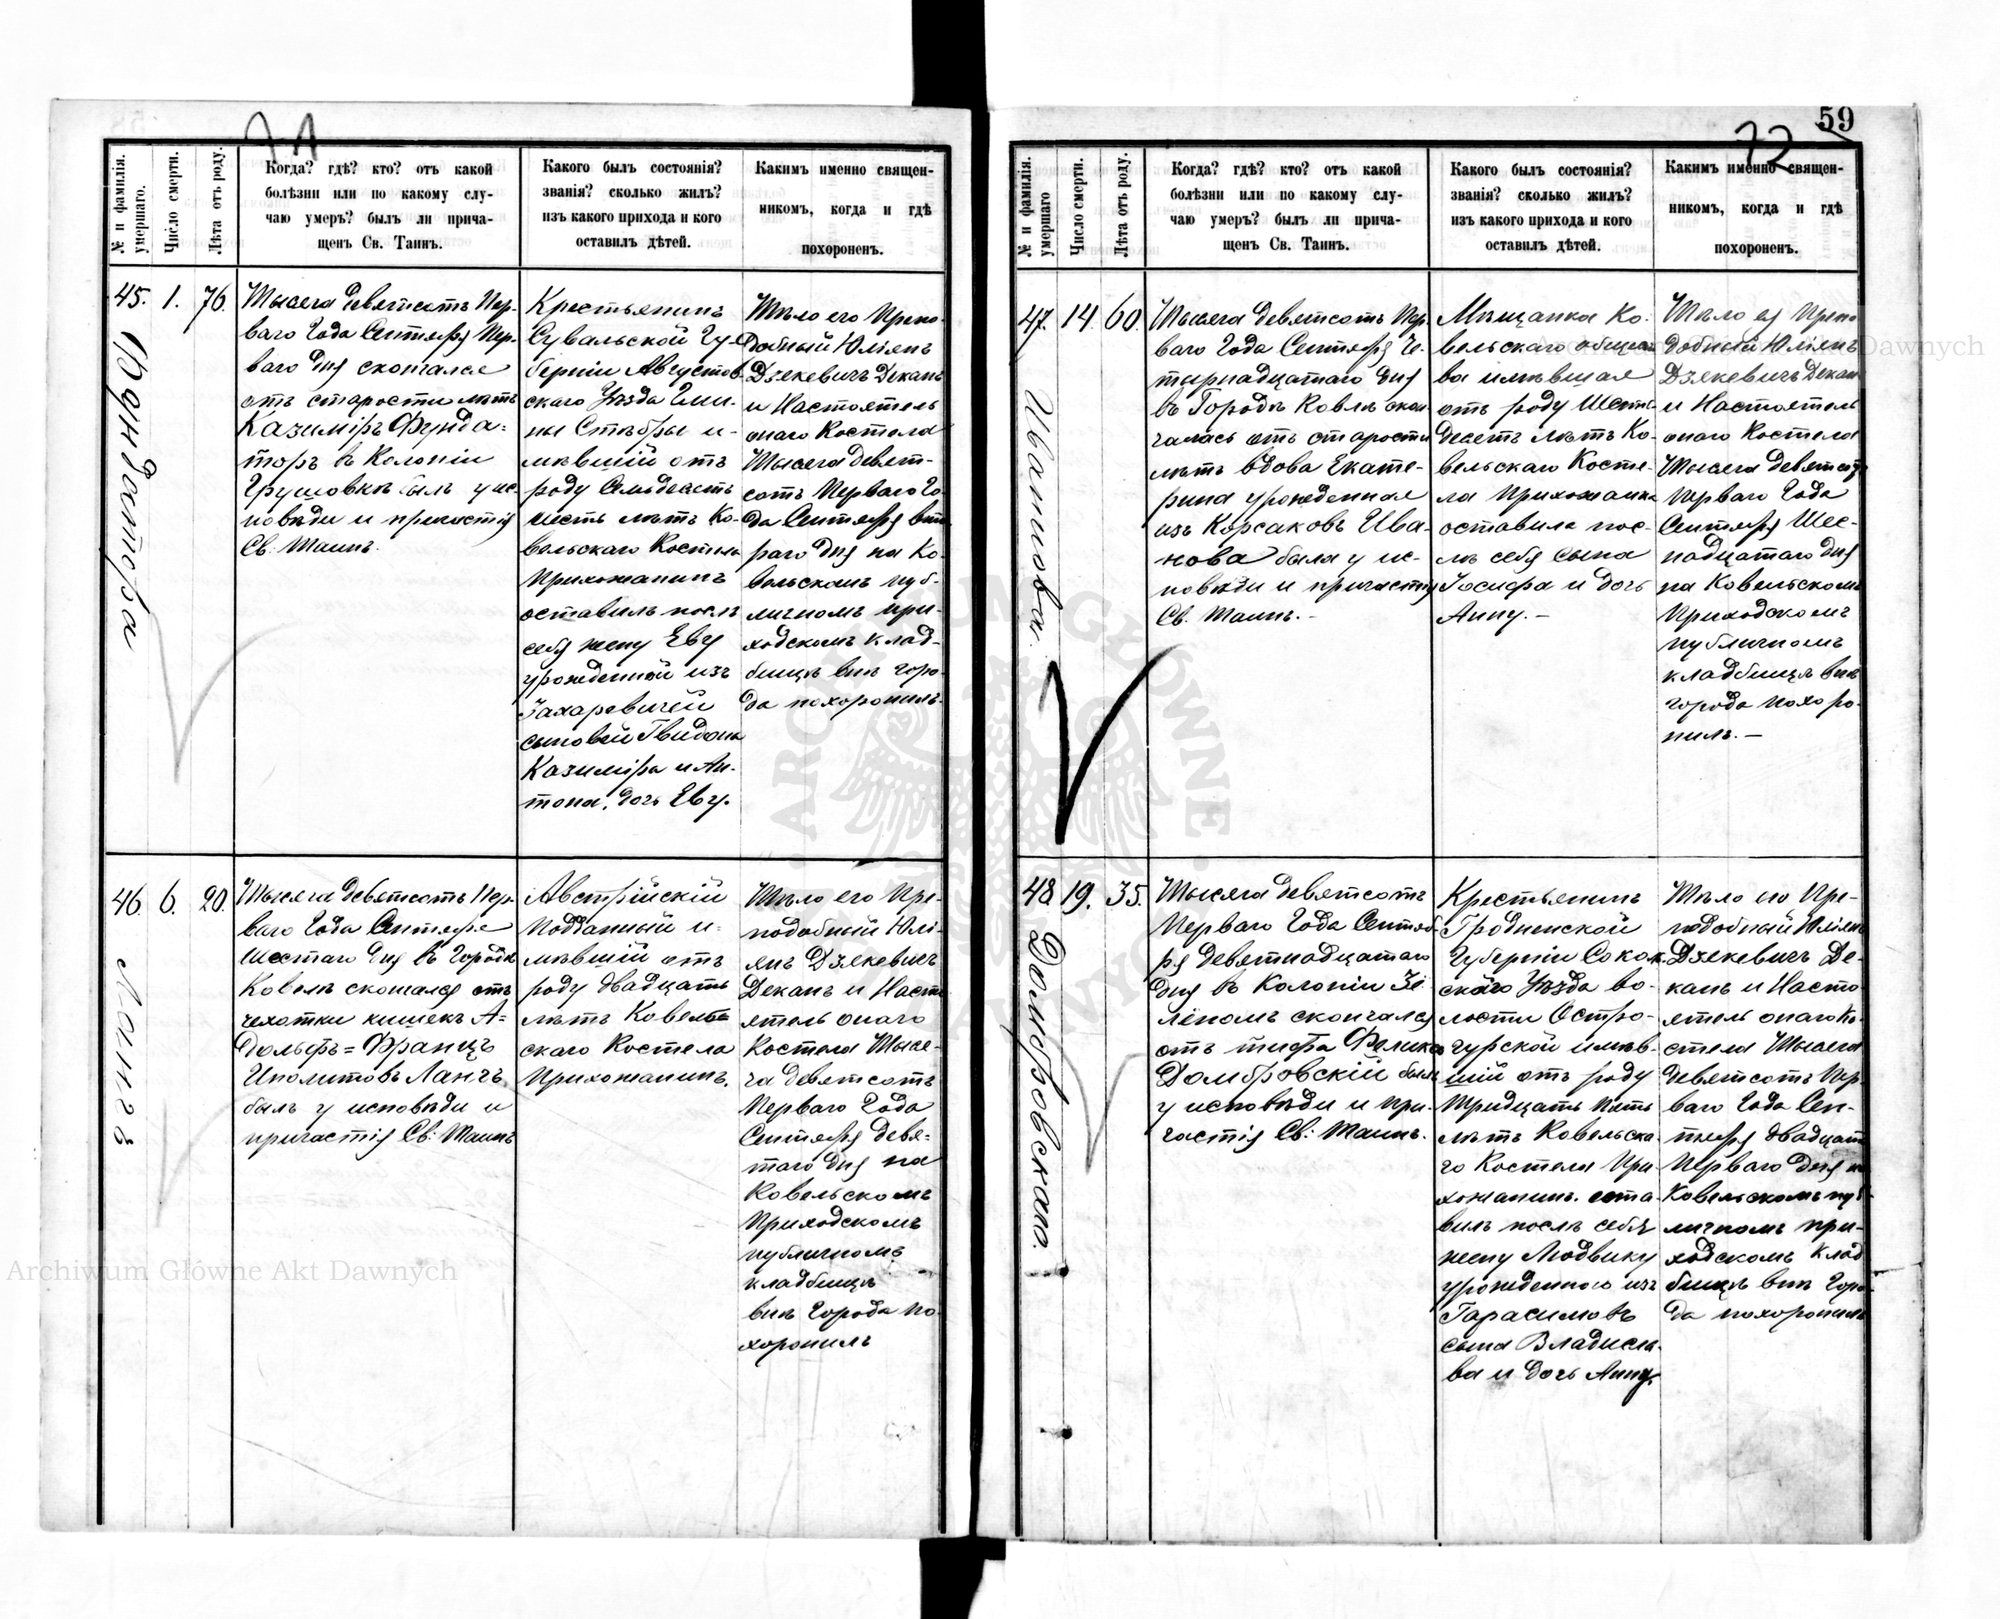 71
№ и фамилія умершаго.
Число смерти.
Лѣта отъ роду.
Когда? гдѣ? кто? отъ какой
болѣзни или по какому слу-
чаю умеръ? былъ ли прича-
щенъ Св. Таинъ.
Какого былъ состоянія?
званія? сколько жилъ?
изъ какого прихода и кого
оставилъ дѣтей.
Каким именно священ-
никомъ, когда и гдѣ
похороненъ.
45.
Фундатора
1.
76.
Тысяча девятсотъ Пер-
ваго Года Сентября Пер-
ваго дня скончался
отъ старости лѣтъ
Казиміръ Фунда=
торъ въ Колоніи
Грушовкѣ былъ у ис
повѣди и причастія
Св. Таинъ.
Крестьянинъ
Сувальской Гу-
берніи Августов
скаго Уѣзда Гми-
ны
и-
мѣвшій отъ
роду Семьдесятъ
шесть лѣтъ Ко-
вельскаго Костела
Прихожанинъ
оставилъ послѣ
себя жену Еву
урожденной изъ
Захаревичей
сыновей Гвидона
Казиміра и Ан-
тона, дочь Еву.
Тѣло его Препо-
добный Юліянъ
Дзякевичъ Деканъ
и Настоятель
онаго Костела
Тысяча девят-
сотъ Перваго Го-
да Сентября вто-
раго дня на Ко-
вельскомъ пуб-
личномъ при-
ходскомъ клад-
бищѣ внѣ горо-
да похоронилъ.
46.
Ланга
6.
20.
Тысяча девятсотъ Пер-
ваго Года Сентября
Шестаго дня въ Городѣ
Ковелѣ скончался отъ
чахотки кишекъ А=
дольфъ=Францъ
Иполитовъ Лангъ
былъ у исповѣди и
причастія Св: Таинъ
Австрійскій
Подданный и-
мѣвшій отъ
роду двадцать
лѣтъ Ковель
скаго Костела
Прихожанинъ.
Тѣло его Пре-
подобный Юлі-
янъ Дзякевичъ
Деканъ и Насто
ятель онаго
Костела Тыся-
ча девятсотъ
Перваго Года
Сентября девя=
таго дня на
Ковельскомъ
Приходскомъ
публичномъ
кладбищѣ
внѣ Города по-
хоронилъ
59
72
№ и фамилія умершаго
Число смерти.
Лѣта отъ роду.
Когда? гдѣ? кто? отъ какой
болѣзни или по какому слу-
чаю умеръ? былъ ли прича-
щенъ Св. Таинъ.
Какого былъ состоянія?
званія? сколько жилъ?
изъ какого прихода и кого
оставилъ дѣтей.
Каким именно священ-
никомъ, когда и гдѣ
похороненъ.
47.
Иванова.
14.
60.
Тысяча девятсотъ Пер
ваго Года Сентября Че-
тырнадцатаго дня
въ Городѣ Ковлѣ скон
чалась отъ старости
лѣтъ вдова Екате-
рина урожденная
изъ Корсаковъ Ива-
нова была у ис-
повѣди и причастія
Св. Таинъ.-
Мѣщанка Ко-
вельскаго общест
ва имѣвшая
отъ роду Шесть-
десятъ лѣтъ Ко-
вельскаго Косте-
ла Прихожанка
оставила пос-
лѣ себя сына
Іосифа и дочь
Анну.-
Тѣло ея Препо
добный Юліянъ
Дзякевичъ Декан
и Настоятель
онаго Костела
Тысяча девятсотъ
Перваго Года
Сентября Шес-
надцатаго дня
на Ковельскомъ
Приходскомъ
публичномъ
кладбищѣ внѣ
города похоро-
нилъ.-
48
Домбровскаго.
19.
35.
Тысяча девятсотъ
Перваго Года Сентяб-
ря девятнадцатаго
дня въ Колоніи Зе
леномъ скончался
отъ тифа Феликсъ
Домбровскій былъ
у исповѣди и при-
частія Св: Таинъ.
Крестьянинъ
Гродненской
Губерніи Сокол-
скаго Уѣзда во-
лости Остро-
гурской имѣв-
шій отъ роду
Тридцать пять
лѣтъ Ковельска-
го Костела При-
хожанинъ. оста-
вилъ послѣ себя
жену Людвику
урожденною изъ
Гарасимовъ
сына Владисла-
ва и дочь Анну.
Тѣло его Пре-
подобный Юліянъ
Дзякевичъ Де-
канъ и Насто-
ятель онаго Ко-
стела Тысяча
девятсотъ Пер-
ваго Года Сен-
тября двадцать
Перваго дня на
Ковельскомъ пуб-
личномъ при-
ходскомъ клад
бищѣ внѣ Горо-
да похоронилъ
Archiwum Główne Akt Dawnych
Archiwum Główne Akt Dawnych
ARCHIWUM GŁÓWNE AKT DAWNYCH